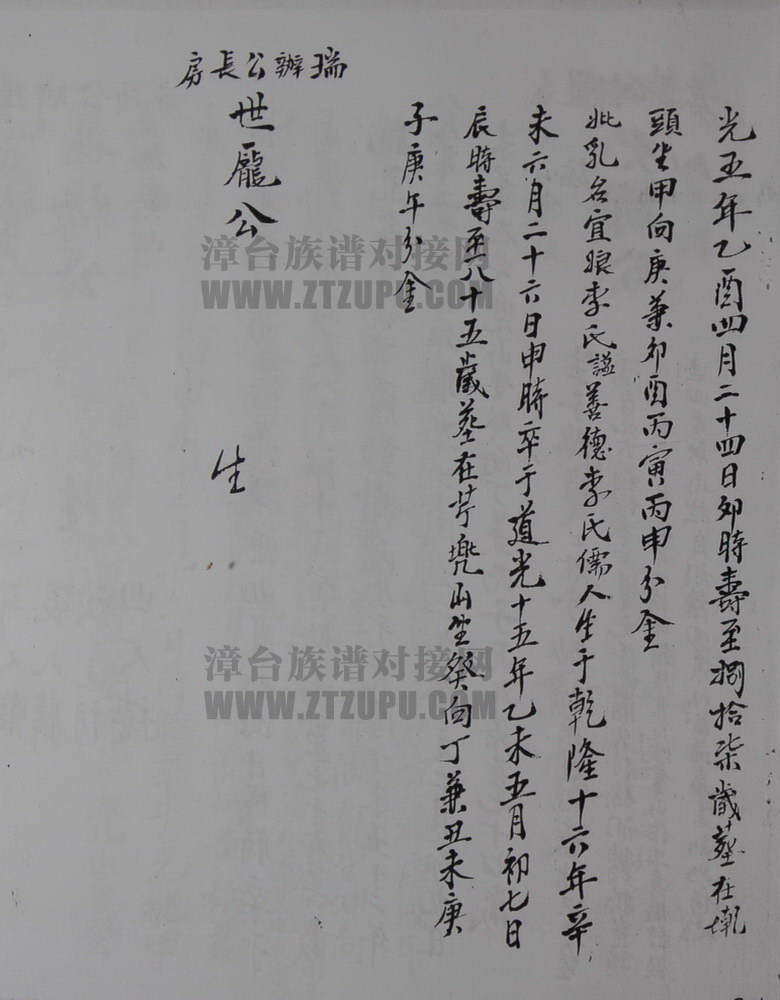 光五年乙酉四月二十四日卯時壽至捌拾柒歲葬在墘
頭坐甲向庚兼卯酉丙寅丙申分金
妣乳名宜娘李氏謚善德李氏儒人生于乾隆十六年辛
未六月二十六日申時卒于道光十五年乙未五月初七日
辰時壽至八十五歲葬在芹兠山坐癸向丁兼丑未庚
子庚午分金
瑞辦公長房
世龐公
生
漳台族谱对接网
WWW.ZTZUPU.COM
漳台族谱对接网
WWW.ZTZUPU.COM